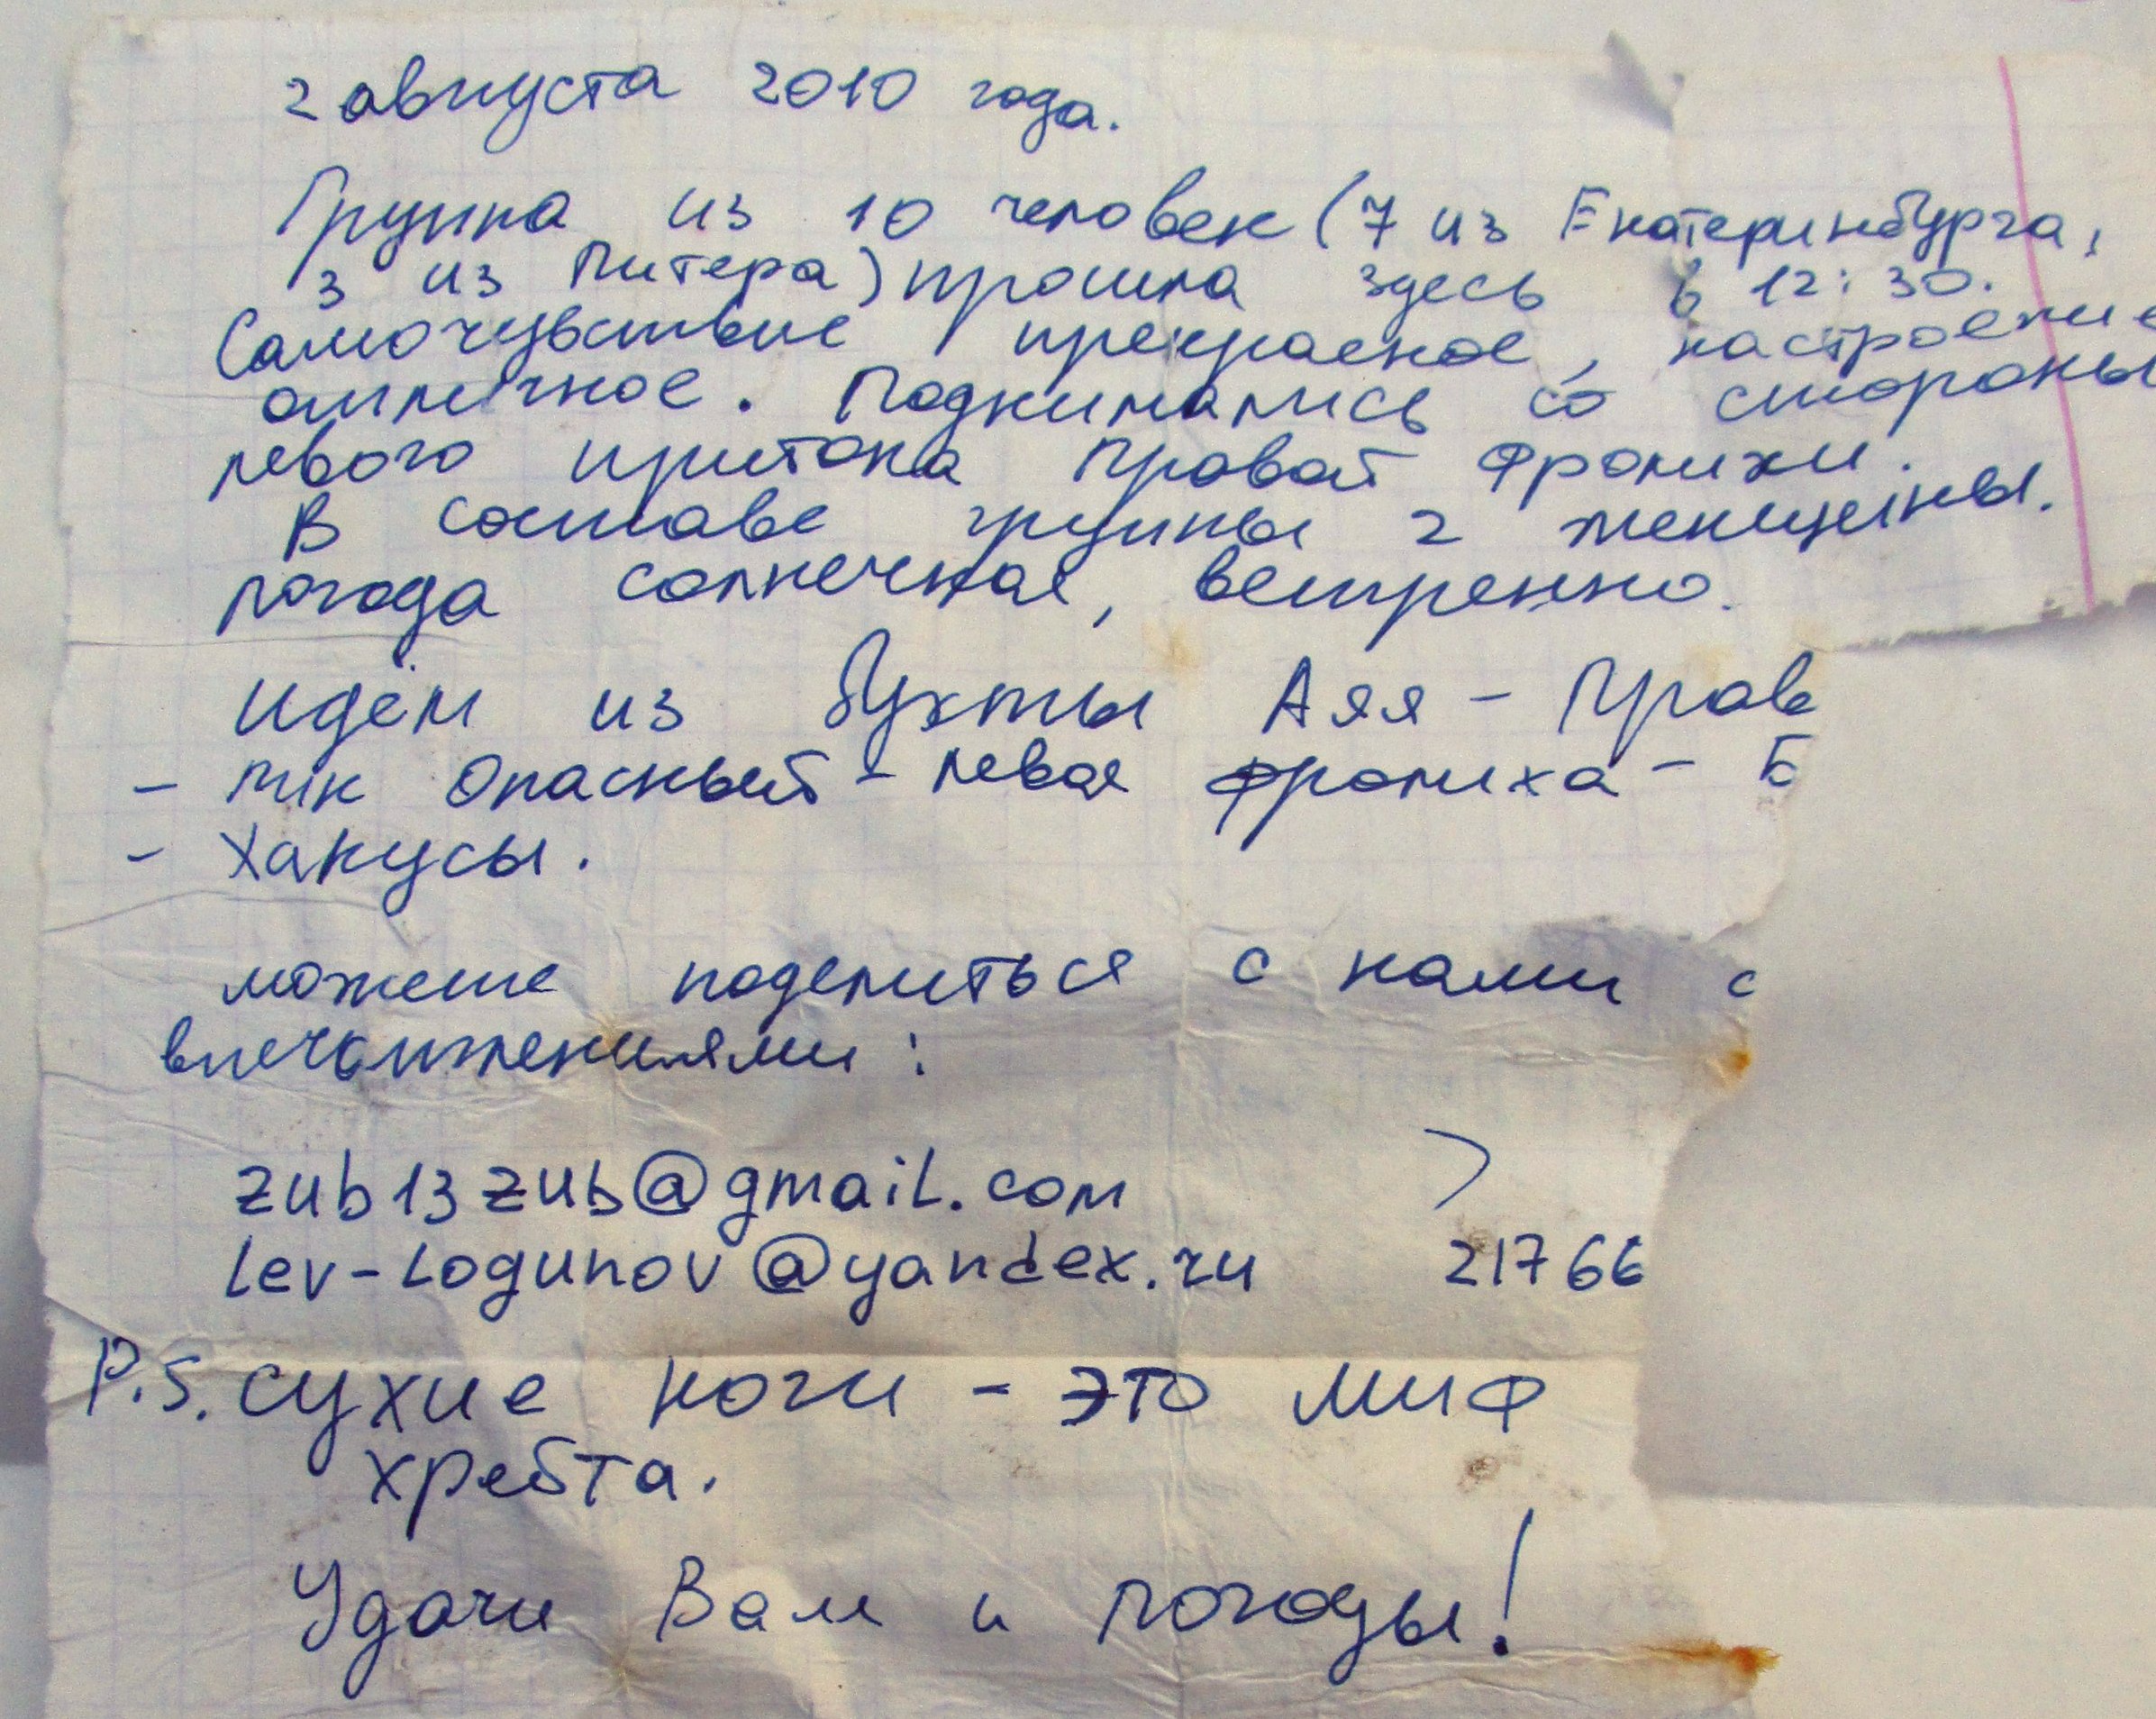 2 августа 2010 года.
Группа из 10 человек (7 из Екатеринбурга,
3 из Питера) прошла здесь в 12:30.
Самочувствие прекрасное, настроение
отличное. Поднимались со стороны
левого притока Правой Фролихи.
В составе группы 2 женщины.
Погода солнечная, ветренно.
Идём из бухты Аяя - Прав
- пик Опасный - Левая Фролиха - Б
- Хакусы.
можете поделиться с нами с
впечатлениями:
zub13zub@gmail.com
lev-logunov@yandex.ru 21766
P.S. сухие ноги - это миф
хребта.
Удачи Вам и погоды!